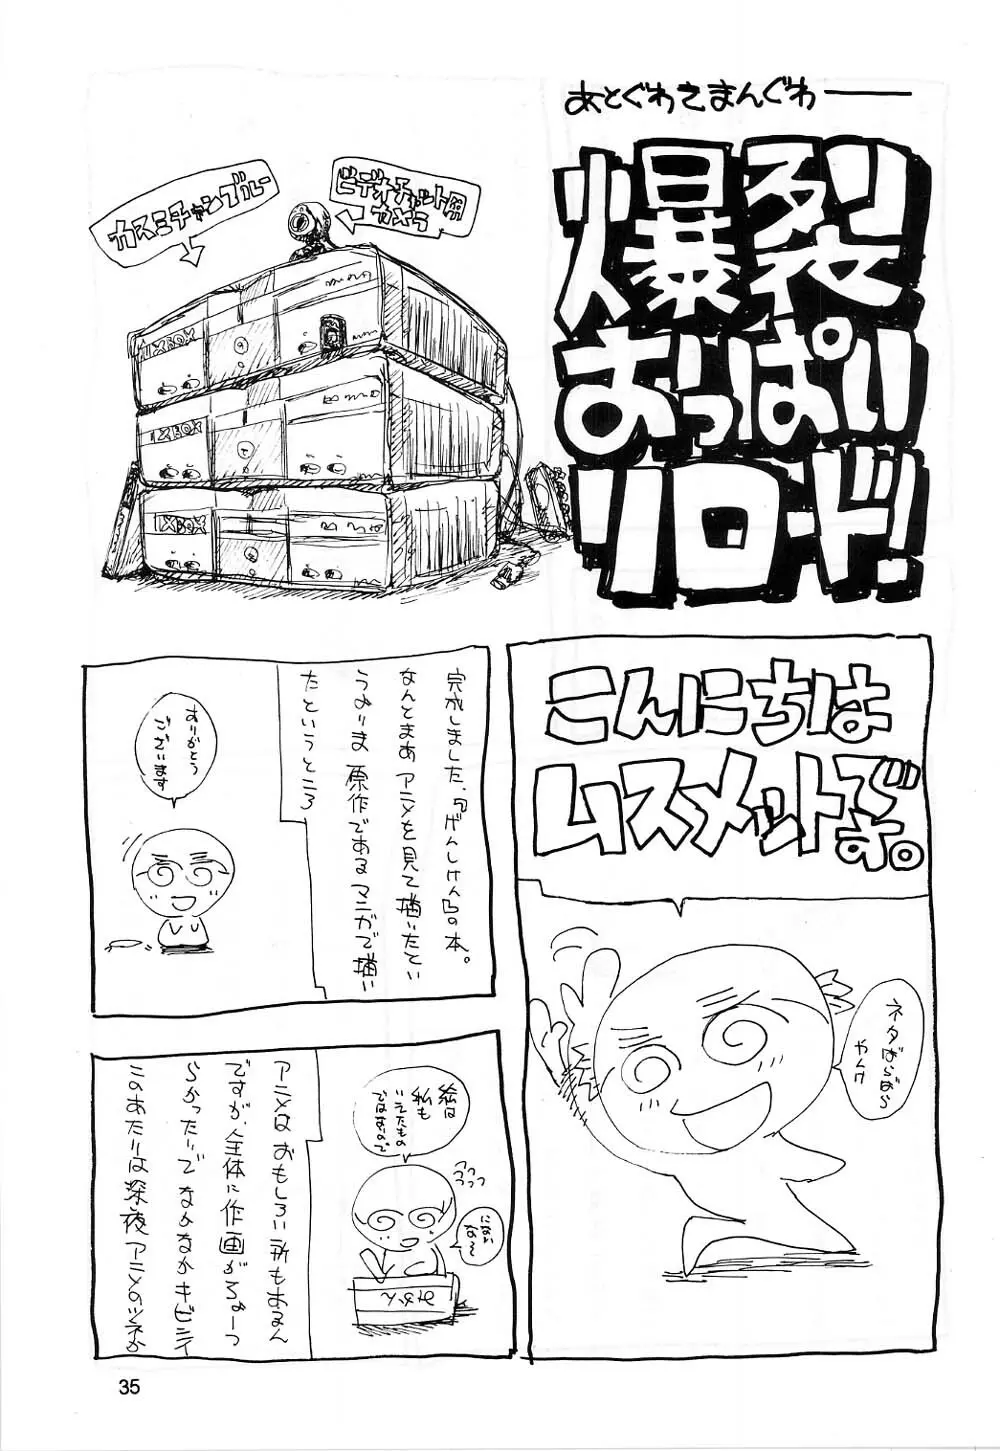 あとぐわきまんぐわ――
爆裂
おっぱい
リロード!
ビデオチャット用
カメラ
カスミチャンブルー
XBOX
XBOX
XBOX
こんにちは
ムスメットです。
ネタばらばら
やんけ
完成しました、『げんしけん』の本。
なんとまあ アニメを見て描いたとい
うより ま 原作である マンガで描い
たというところ
ありがとう
ございます
アニメは おもしろい所もあるん
ですが、全体に作画がちょーっ
らかったりで なかなか キビシイ
このあたりは深夜アニメのツネか
絵は
私も
いえたもの
ではないので
にない
な〜
みかん
35